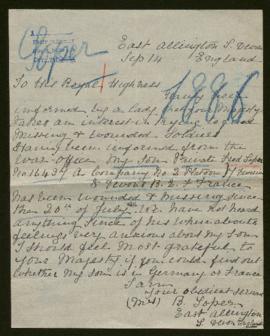 Loper
East Allington S. Devon
Sep 14 England
To His Royal Highness
Having been
informed by a lady that your Majesty
takes an interest in trying to find
Missing & Wounded Soldiers
Having been informed from the
War-office. My son Private Fred Loper
No 16439 A Company No 2 Platoon 9 Division
8 Devons B.E.F France
has been wounded & missing since
then 20th of July. We have not heard
anything since of his whereabouts
feelings very anxious about my Son
I should feel most grateful to
your Majesty if you could find out
whether My son is in Germany or France
I am
your obedient servant
(Mrs) B. Loper
East Allington
S. Devon England